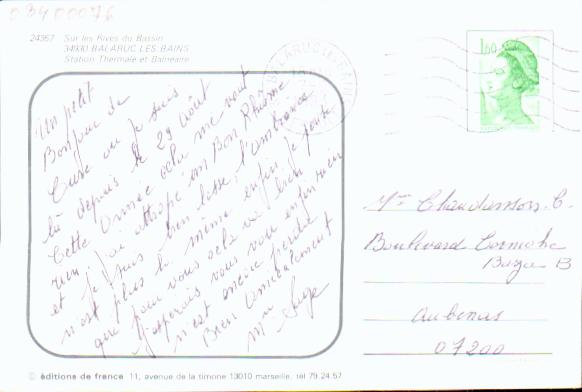 03400076
24357 Sur les Rives du Bassin
34930 BALARUC LES BAINS
Station Thermale et Balnéaire
BALARUC LES BAINS
1,60
Un petit
Bonjour de
Cure ou je suis
là depuis le 29 Août
Cette Année cela me vaut
rien j'ai attrapé un Bon Rhume
et je suis bien lasse, l'ambiance
n'est plus la même enfin je pense
que pour vous cela va bien
J'espérais vous voir enfin rien
n'est encore perdu
Bien Amicalement
Mme
Mme Chaudanson C.
Boulevard Corniche
B
Aubenas
07200
© éditions de france 11, avenue de la timone 13010 marseille, tél 79.24.57